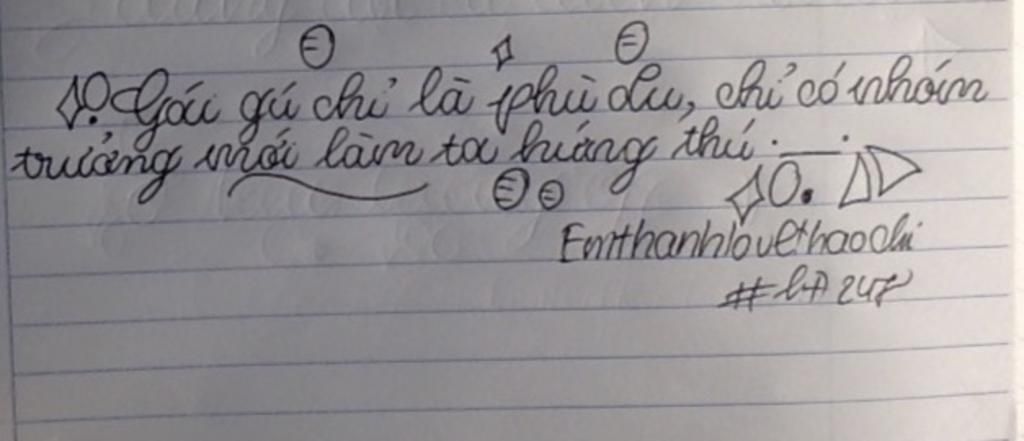 Gái gú chỉ là phù du, chỉ có nhóm
trưởng mới làm ta hứng thú.
Emthanhlovethaochi